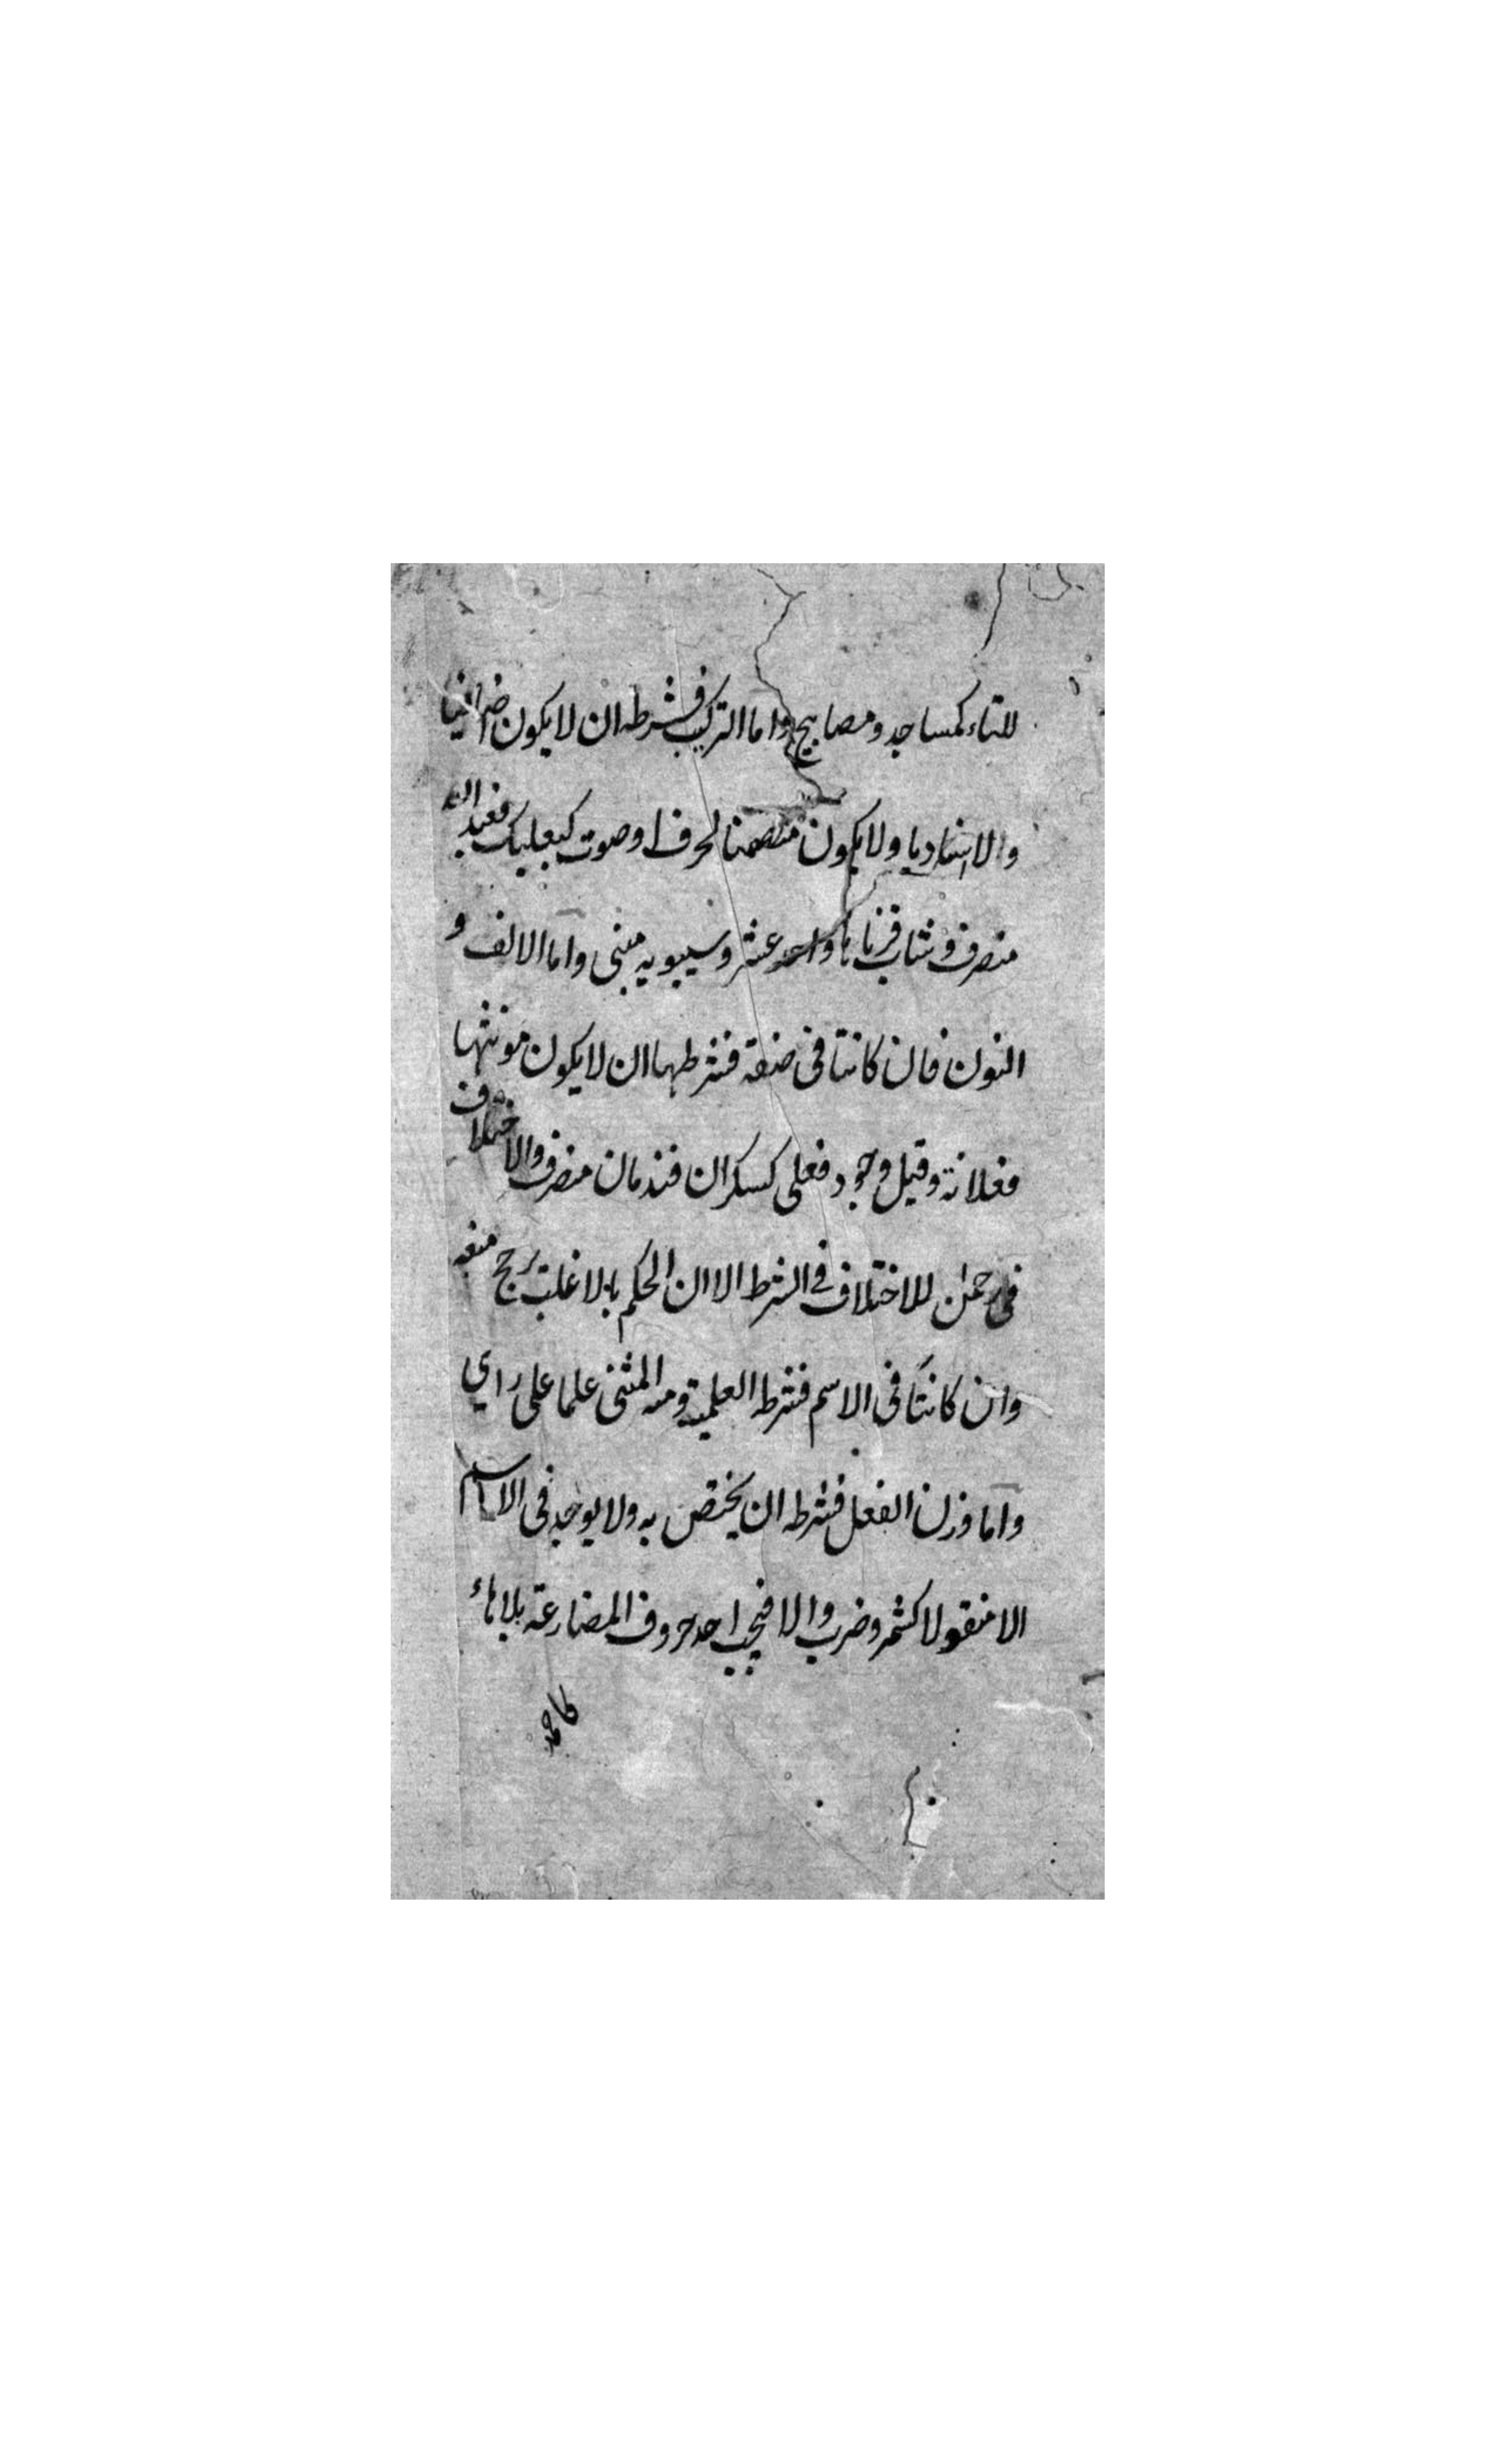 للتاء كمساجد ومصابيح واما التركيب فشرطه ان لا يكون اضافيا
والاسناديا ولا يكون متضمنا لحرف او صوت كبعلبك فعبد الله
منصرف وشاب قرناها واحد عشر وسيبويه مبنى واما الالف و
النون فان كانتا فى صفة فشرطهما ان لا يكون مونثها
فعلانة وقيل وجود فعلى كسكران فندمان منصرف والاختلاف
فى رحمن للاختلاف فى الشرط الا ان الحكم بالاغلب رجح منعه
وان كانتا فى الاسم فشرطه العلمية ومنه المثنى علما على راي
واما وزن الفعل فشرطه ان يختص به ولا يوجد فى الاسم
الا منقولا كشمر وضرب والا فيجب احد حروف المضارعة بلا هاء
كاحمد